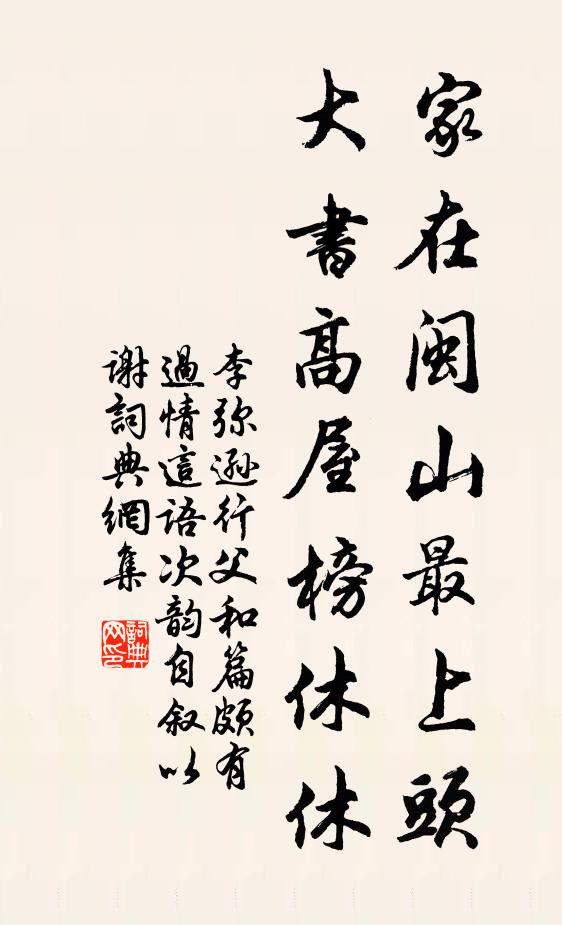 家在閩山最上頭
大書高屋榜休休
李弥遜行父和篇頗有
過情這語次韵自叙以
謝詞典網集
詞典
网印